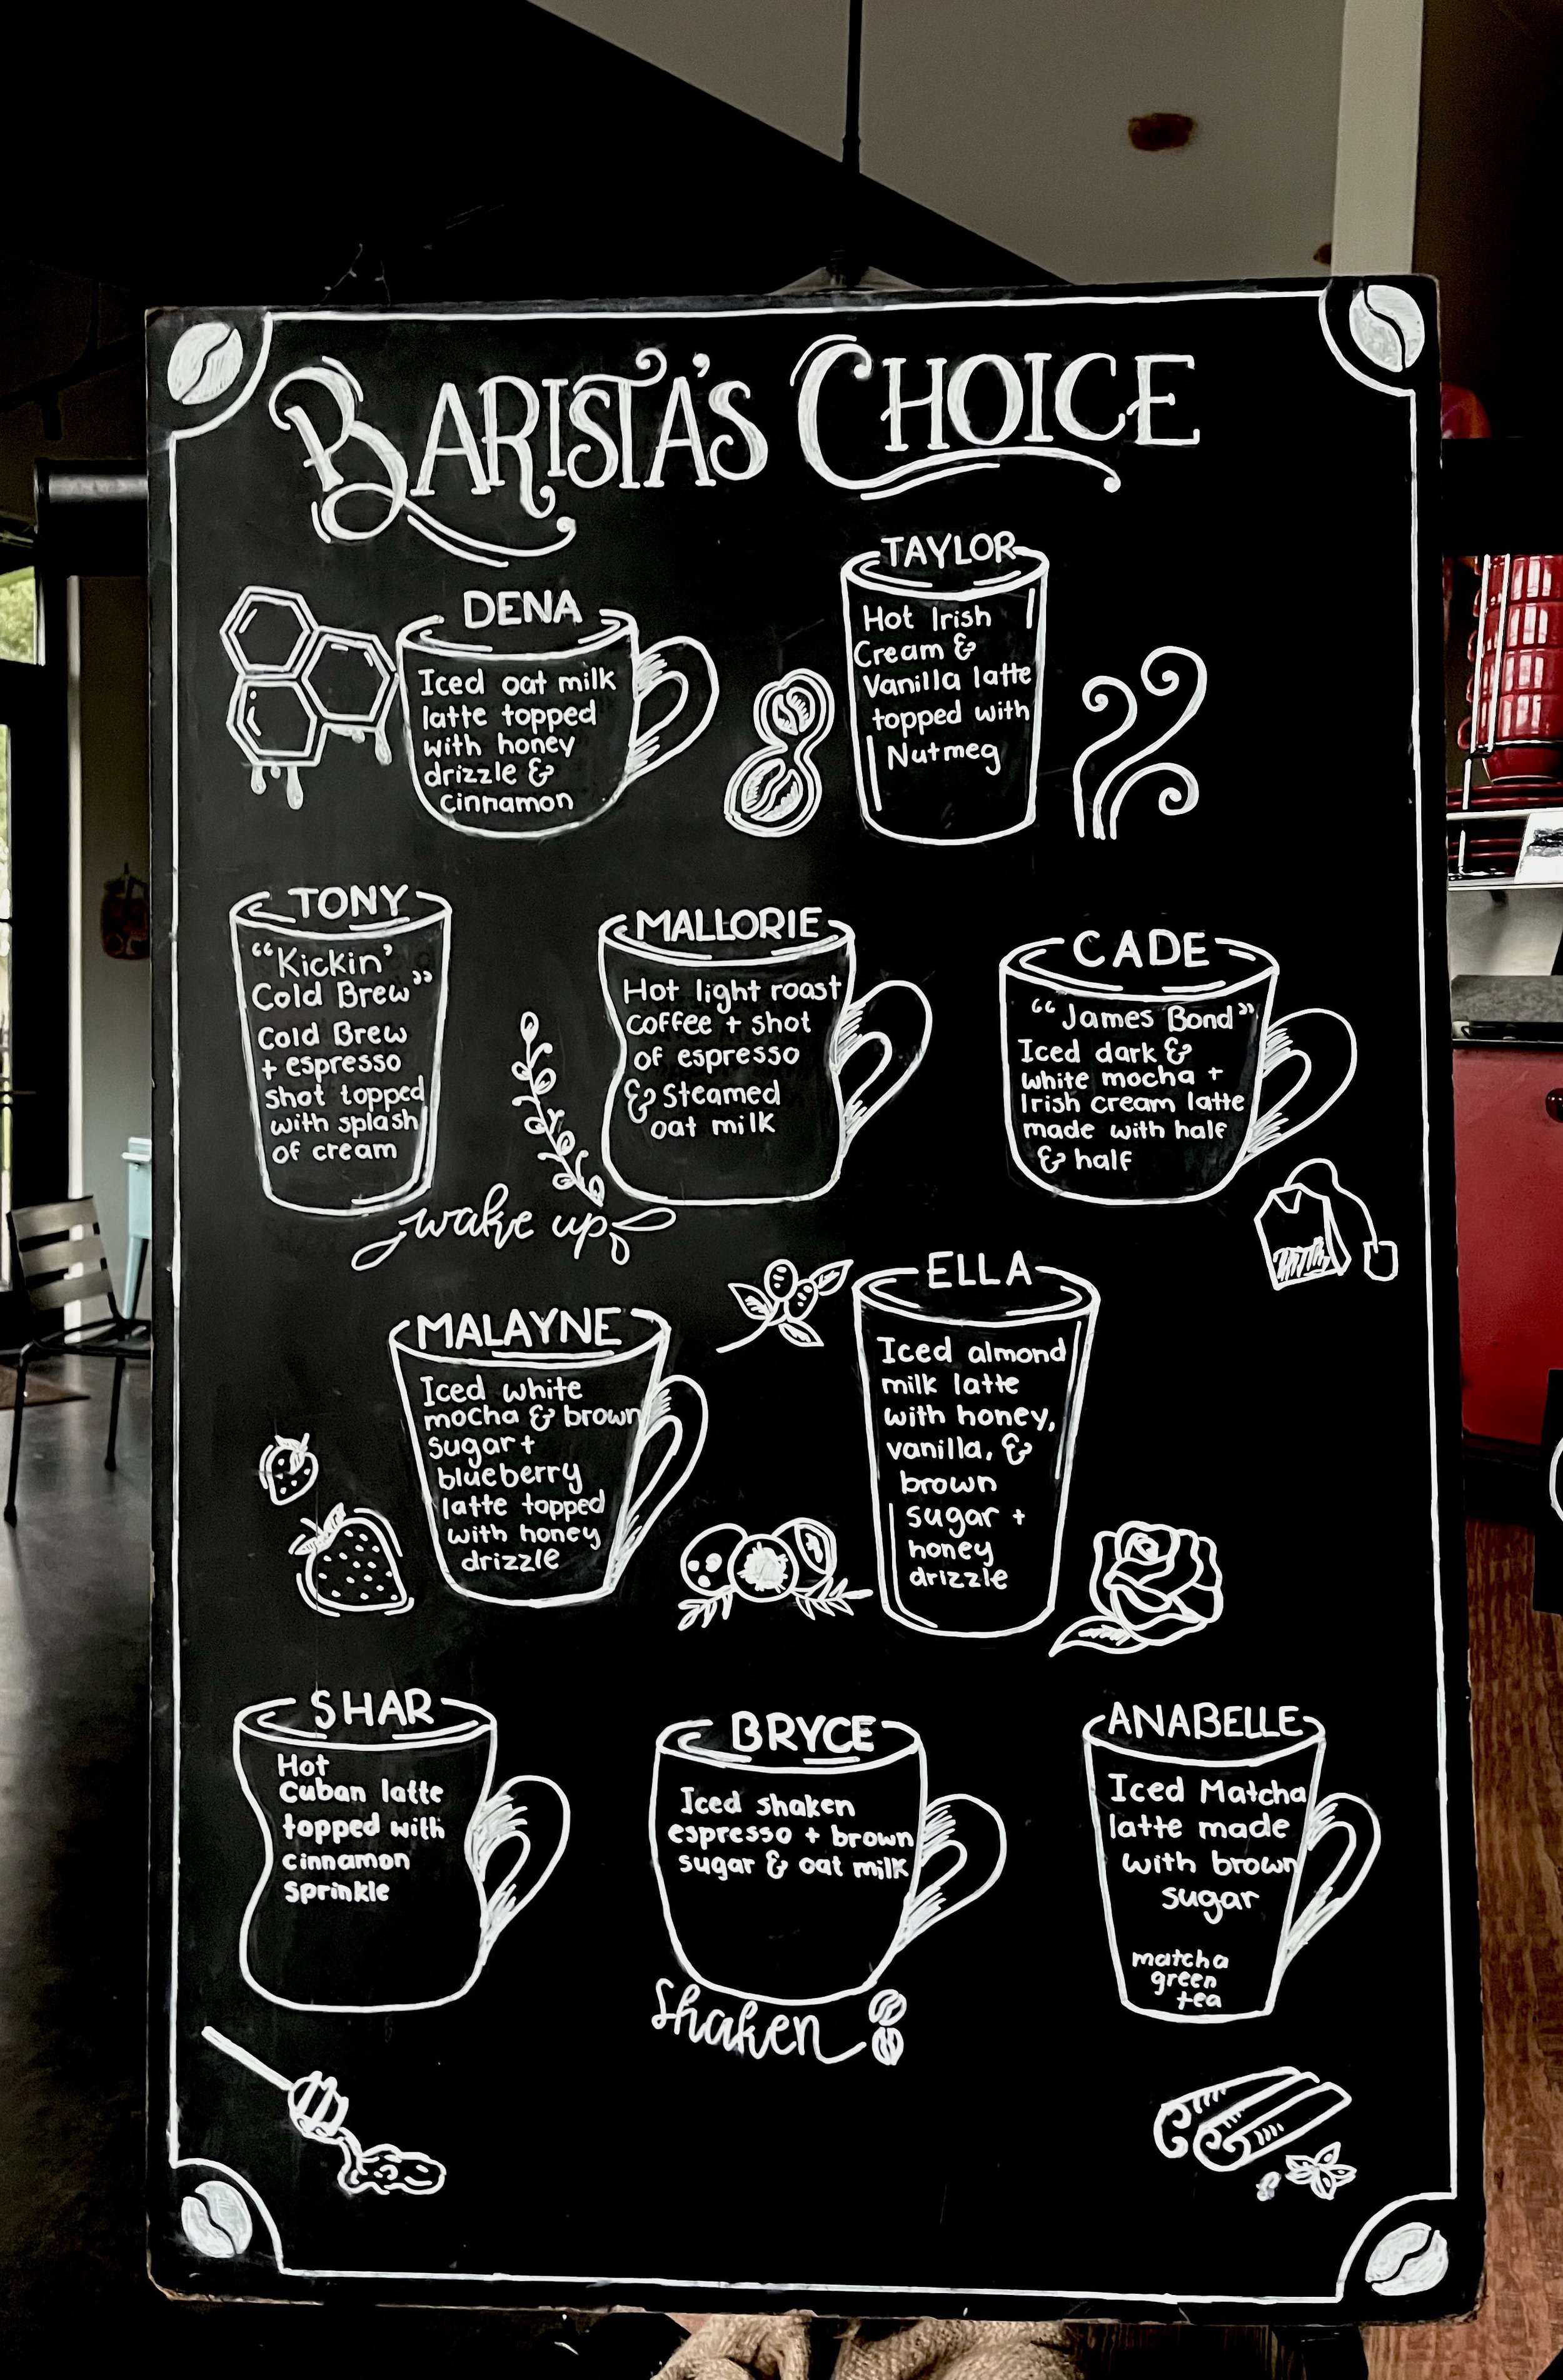 BARISTA'S CHOICE
DENA
Iced oat milk
latte topped
with honey
drizzle &
cinnamon
TAYLOR
Hot Irish
Cream &
Vanilla latte
topped with
Nutmeg
TONY
"Kickin'
Cold Brew"
Cold Brew
+ espresso
shot topped
with splash
of cream
MALLORIE
Hot light roast
coffee + shot
of espresso
& Steamed
oat milk
CADE
"James Bond"
Iced dark &
white mocha +
Irish cream latte
made with half
& half
wake up
MALAYNE
Iced white
mocha & brown
sugar +
blueberry
latte topped
with honey
drizzle
ELLA
Iced almond
milk latte
with honey,
vanilla, &
brown
sugar +
honey
drizzle
SHAR
Hot
Cuban latte
topped with
cinnamon
sprinkle
BRYCE
Iced shaken
espresso + brown
sugar & oat milk
shaken
ANABELLE
Iced Matcha
latte made
with brown
sugar
matcha
green
tea